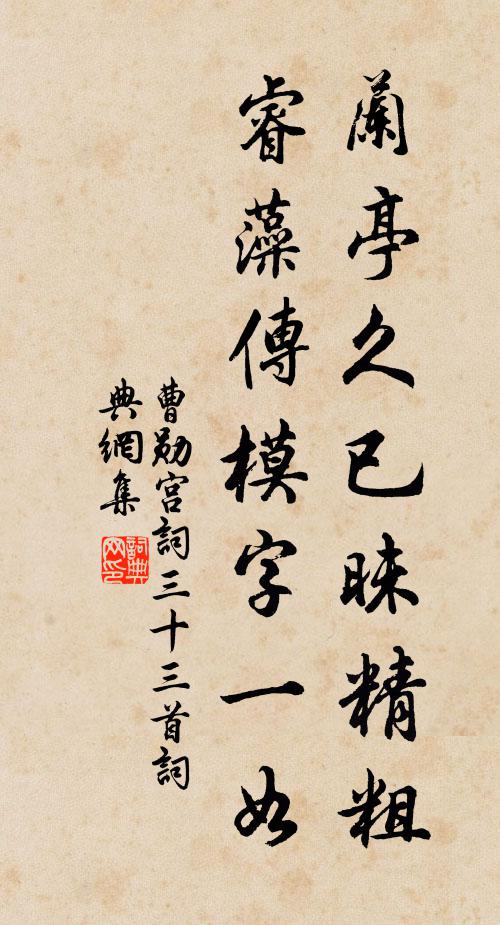 蘭亭久已昧精粗
睿藻傳模字一如
曹勛宫詞三十三首詞
典網集
詞典網印